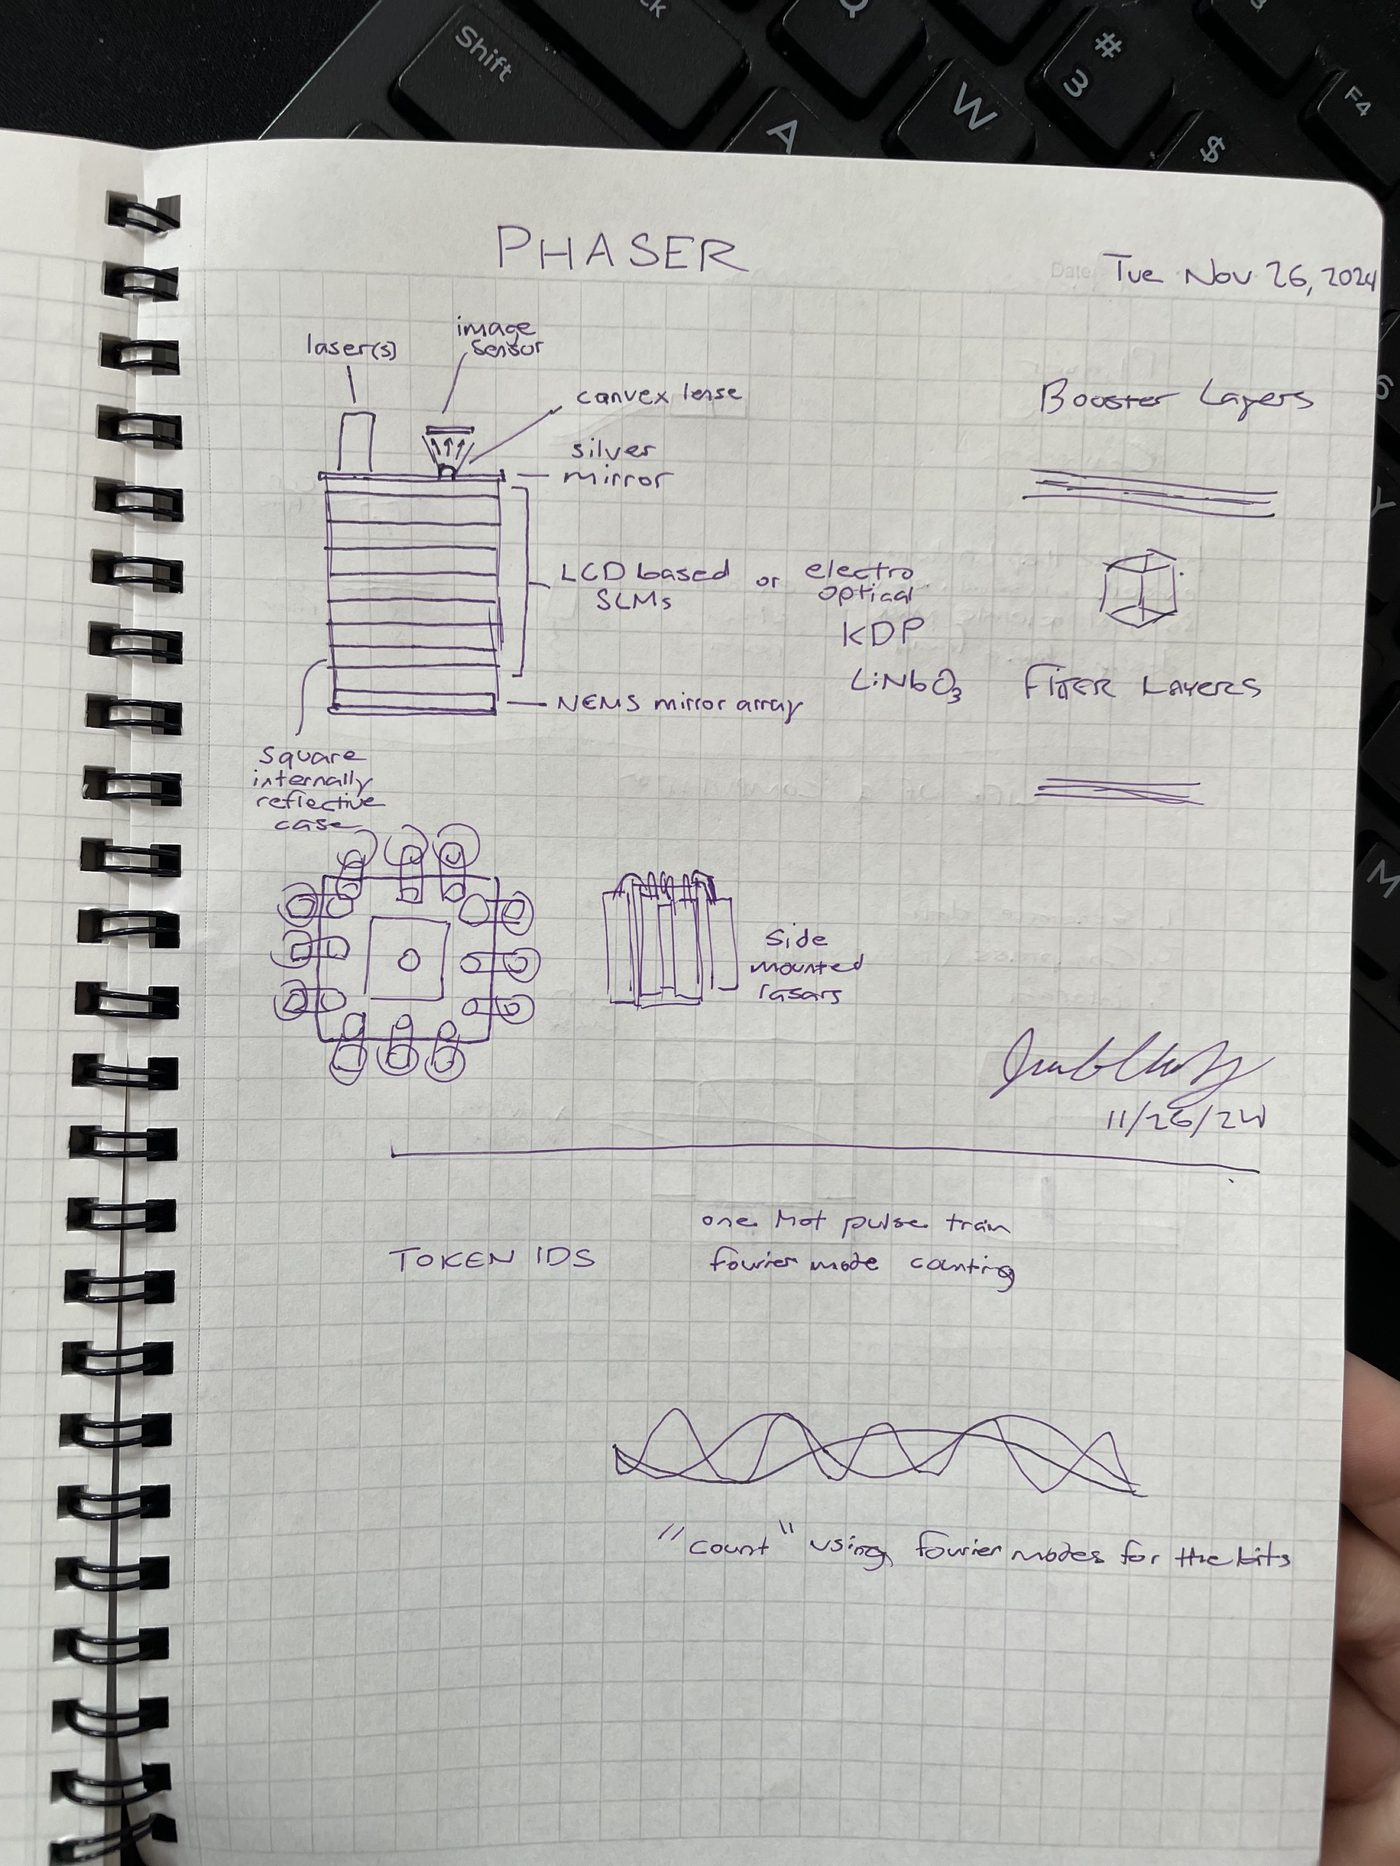 Shift
ck
Q
A
W
#
3
$
F4
M
PHASER
Date
Tue Nov 26, 2024
laser(s)
image
sensor
canvex lense
silver
mirror
Booster Layers
LCD based or electro
SLMs
optical
KDP
LiNbO3
NEMS mirror array
square
internally
reflective
case
side
mounted
lasars
11/26/24
TOKEN IDS
one Hot pulse train
fourier mode counting
"count" using fourier modes for the bits